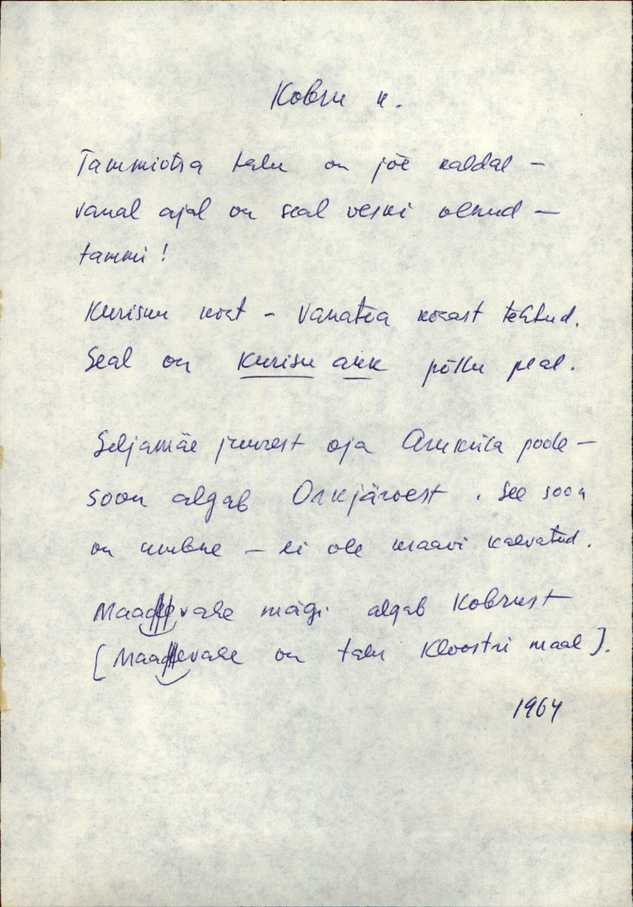 Kobru k.
Tammiotsa talu on jõe kaldal –
vanal ajal on seal veski olnud –
tammi!
Kurisuu kost – Vanatoa kosast tehtud.
Seal on Kurisu auk põllu peal.
Seljamäe juurest oja Aruküla poole –
soon algab Orkjärvest. See soon
on umbne – ei ole kraavi kaevatud.
Maadevahe mägi algab Kobrust
[Maadevahe on talu Kloostri maal].
1964